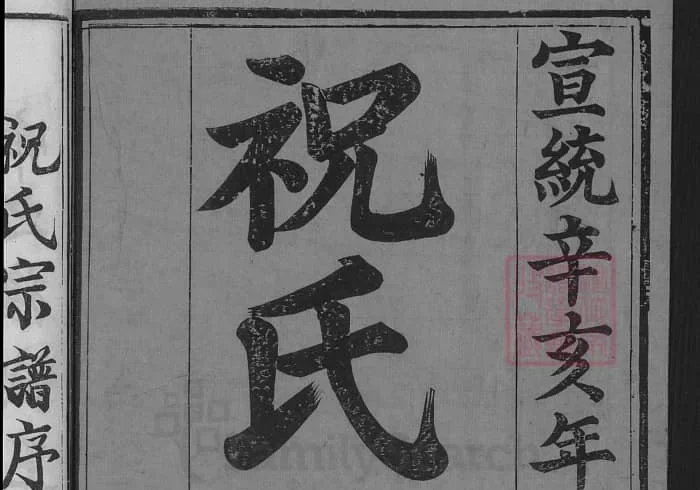 宣統辛亥年
祝氏
祝氏宗譜序